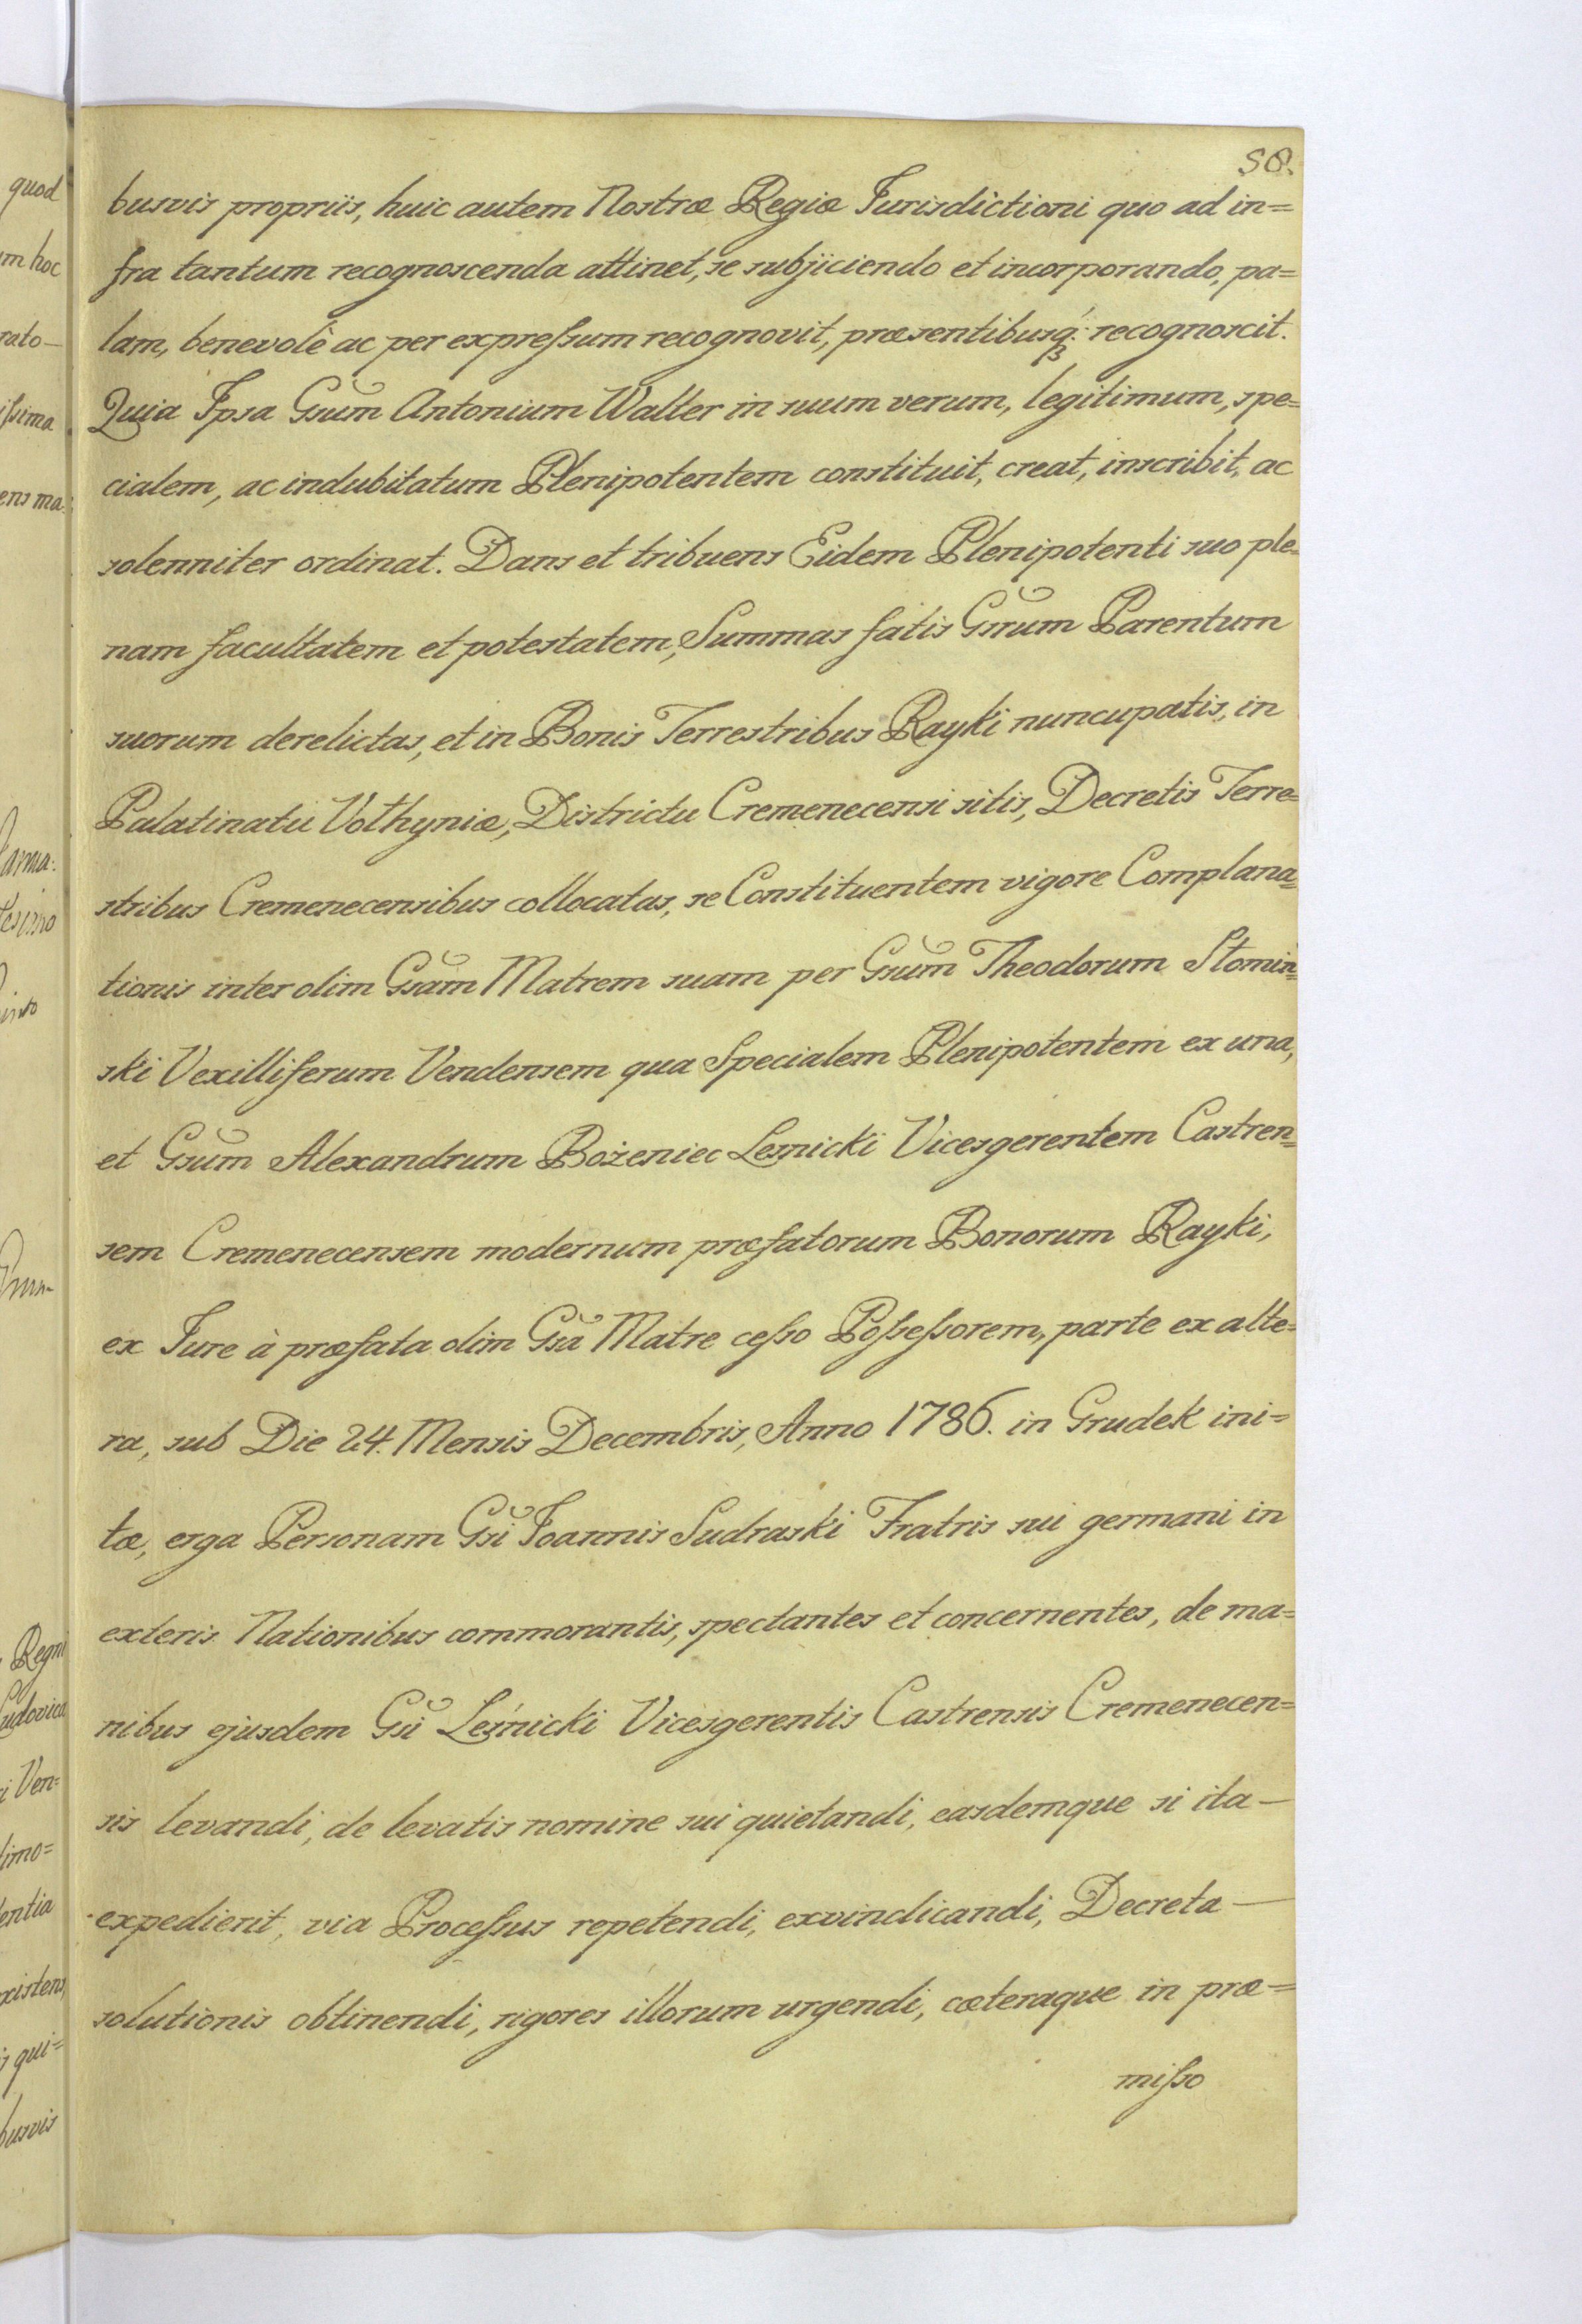 58.
busvis propriis, huic autem Nostræ Regiæ Jurisdictioni quo ad in=
fra tantum recognoscenda attinet, se subjiciendo et incorporando, pa=
lam, benevolè ac per expreſsum recognovit, præsentibusq́; recognoscit.
Quia Ipsa Gsum Antonium Walter in suum verum, legitimum, spe=
cialem, ac indubitatum Plenipotentem constituit, creat, inscribit, ac
solenniter ordinat. Dans et tribuens Eidem Plenipotenti suo ple=
nam facultatem et potestatem, Summas fatis Gsrum Parentum
suorum derelictas, et in Bonis Terrestribus Rayki nuncupatis, in
Palatinatu Volhyniæ, Districtu Cremenecensi sitis, Decretis Terre=
stribus Cremenecensibus collocatas, se Constituentem vigore Complana=
tionis inter olim Gsam Matrem suam per Gsum Theodorum Słomiń=
ski Vexilliferum Vendensem qua Specialem Plenipotentem ex una,
et Gsum Alexandrum Bożeniec Leśnicki Vicesgerentem Castren=
sem Cremenecensem modernum præfatorum Bonorum Rayki,
ex Jure à præfata olim Gsa Matre ceſso Poſseſsorem, parte ex alte=
ra, sub Die 24. Mensis Decembris, Anno 1786. in Grudek ini=
tæ, erga Personam Gsi Joannis Sudraski Fratris sui germani in
exteris Nationibus commorantis, spectantes et concernentes, de ma=
nibus ejusdem Gsi Leśnicki Vicesgerentis Castrensis Cremenecen=
sis levandi, de levatis nomine sui quietandi, easdemque si ita —
expedierit, via Proceſsus repetendi, exvindicandi, Decreta —
solutionis obtinendi, rigores illorum urgendi, cæteraque in præ=
miſso